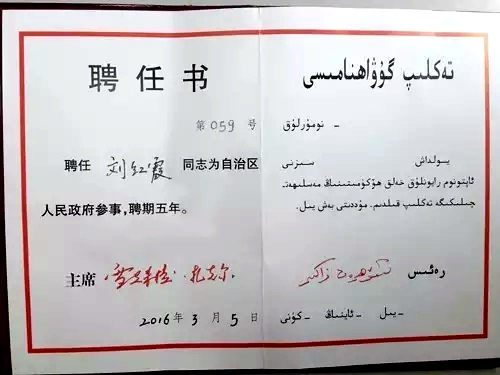 聘任书
第059号
聘任 刘红霞 同志为自治区
人民政府参事,聘期五年。
主席 雪克来提·扎克尔
2016年3月5日
تەكلىپ گۇۋاھنامىسى
نومۇرلۇق -
يولداش سىزنى
ئاپتونوم رايونلۇق خەلق ھۆكۈمىتىنىڭ مەسلىھەت
چىلىكىگە تەكلىپ قىلدىم. مۇددىتى بەش يىل.
رەئىس شۆھرەت زاكىر
- يىل - ئاينىڭ - كۈنى